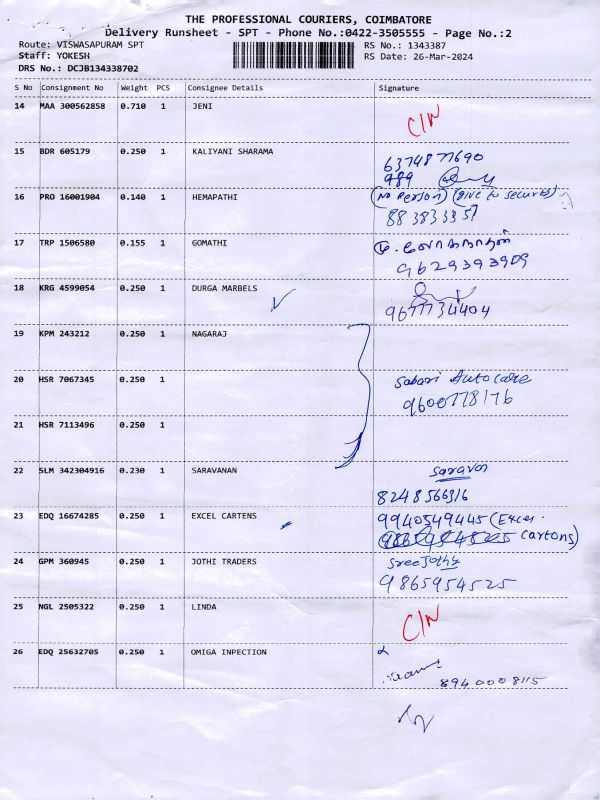 THE PROFESSIONAL COURIERS, COIMBATORE
Delivery Runsheet - SPT - Phone No.:0422-3505555 - Page No.:2
Route: VISWASAPURAM SPT RS No.: 1343387
Staff: YOKESH RS Date: 26-Mar-2024
DRS No.: DCJB134338702
S No Consignment No Weight PCS Consignee Details Signature
14 MAA 300562858 0.710 1 JENI
C/N
15 BDR 605179 0.250 1 KALIYANI SHARAMA
6374877690
989
16 PRO 16001904 0.140 1 HEMAPATHI (No Person) (give to security)
883833357
17 TRP 1506580 0.155 1 GOMATHI
9629393909
18 KRG 4599054 0.250 1 DURGA MARBELS
9677734404
19 KPM 243212 0.250 1 NAGARAJ
20 HSR 7067345 0.250 1 Sabari Autocare
9600778176
21 HSR 7113496 0.250 1
22 SLM 342304916 0.230 1 SARAVANAN
8248566316
23 EDQ 16674285 0.250 1 EXCEL CARTENS 9940549445 (Excel
Cartons)
24 GPM 360945 0.250 1 JOTHI TRADERS Sree Jothi
9865954525
25 NGL 2505322 0.250 1 LINDA
C/N
26 EDQ 25632705 0.250 1 OMIGA INPECTION
8940008115